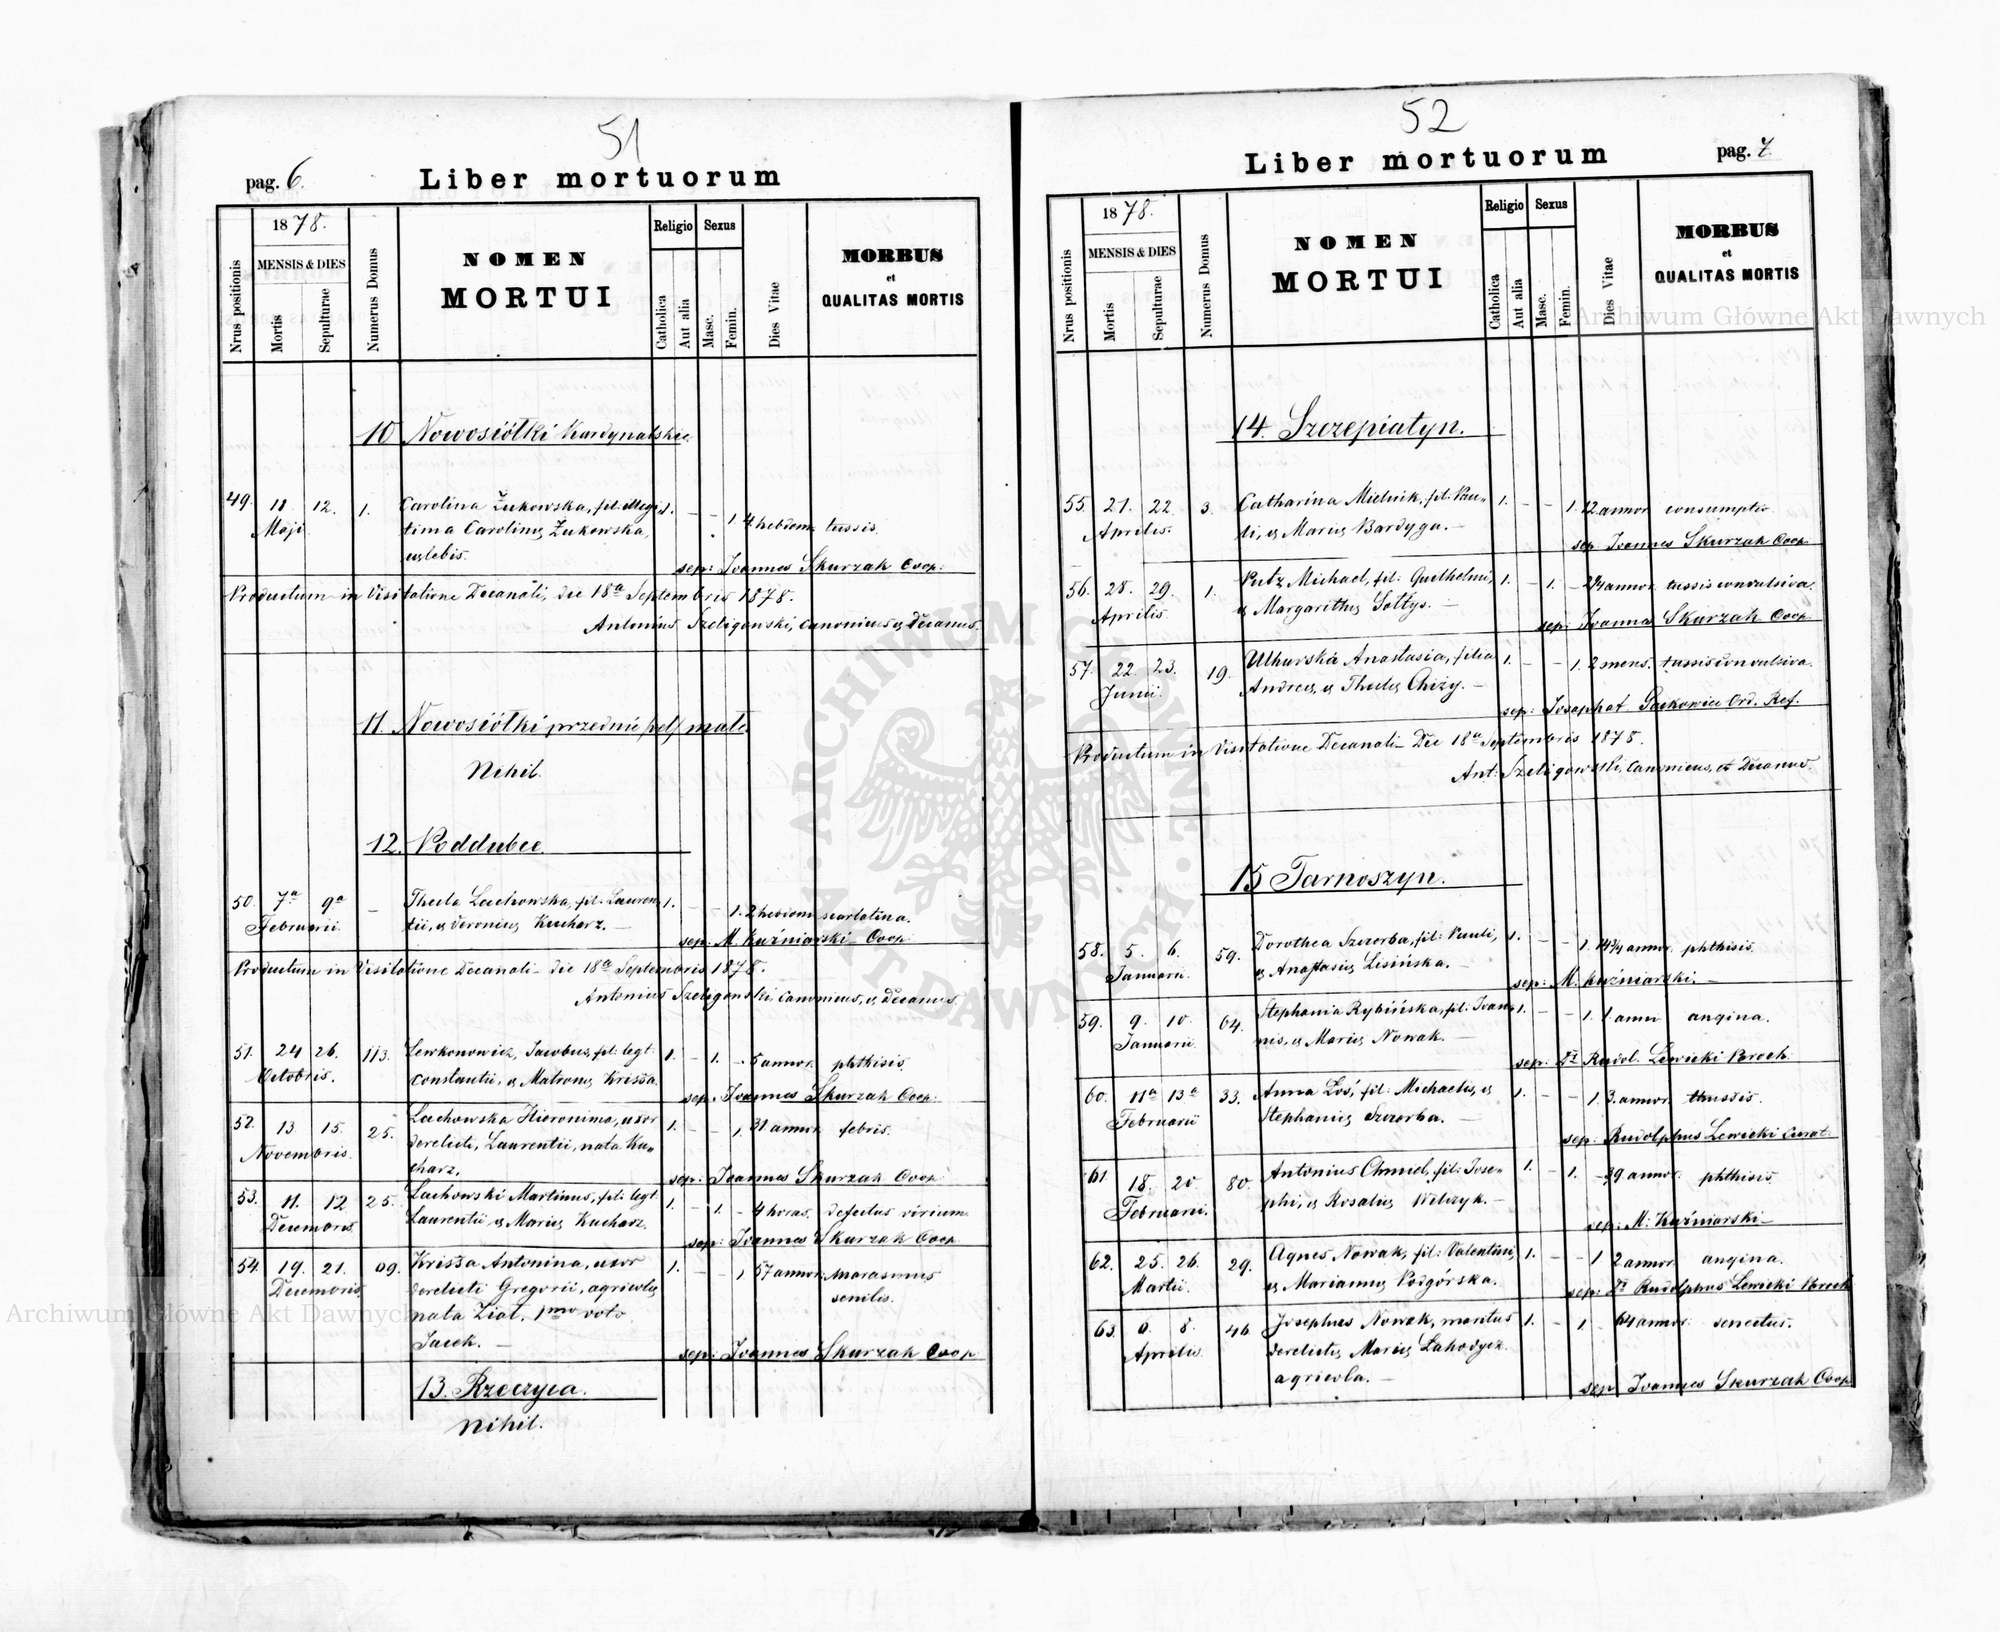 51
pag. 6.
Liber mortuorum
Nrus positionis
1878.
MENSIS & DIES
Mortis
Sepulturae
Numerus Domus
NOMEN
MORTUI
Religio
Catholica
Aut alia
Sexus
Masc.
Femin.
Dies Vitae
MORBUS
et
QUALITAS MORTIS
10 Nowosiółki Kardynalskie
49. 11 12. 1. Carolina Żukowska, fil. illegi- 1. - - 1. 4 hebdom. tussis.
Maji tima Carolinę Żukowska,
cęlebis.
sep: Joannes Skurzak Coop:
Productum in Visitatione Decanali, die 18a Septembris 1878.
Antonius Szeligowski, canonicus & Decanus.
11. Nowosiółki przednie /vel/ małe
Nihil.
12. Poddubce
50. 7a 9a - Thecla Lachowska, fil. Lauren- 1. - - 1. 2 hebdom scarlatina.
Februarii tii, & Veronicę Kucharz. -
sep: M. Kuźniarski Coop:
Productum in Visitatione Decanali die 18a Septembris 1878.
Antonius Szeligowski canonicus, & Decanus.
51. 24 26. 113. Lewkonowicz, Jacobus, fil: legt: 1. - 1. - 5 annor. phthisis.
Octobris. Constantii, & Matronę Krissa.
sep. Joannes Skurzak Coop:
52. 13. 15. 25. Lachowska Hieronima, uxor 1. - - 1. 31 annor febris.
Novembris. derelicti, Laurentii, nata Ku-
charz.
sep: Joannes Skurzak Coop
53. 11. 12 25. Lachowski Martinus, fil: legt: 1. - 1. - 4 horas. defectus virium.
Decembris Laurentii & Marię Kucharz.
sep: Joannes Skurzak Coop
54. 19. 21. 09. Krissa Antonina, uxor 1. - - 1. 57 annor. marasmus
Decembris derelicti Gregorii, agricolę senilis.
nata Ziół, 1mo voto
Jacek. -
sep: Joannes Skurzak Coop
13. Rzeczyca.
Nihil.
52
Liber mortuorum
pag. 7.
Nrus positionis
1878.
MENSIS & DIES
Mortis
Sepulturae
Numerus Domus
NOMEN
MORTUI
Religio
Catholica
Aut alia
Sexus
Masc.
Femin.
Dies Vitae
MORBUS
et
QUALITAS MORTIS
14. Szczepiatyn.
55. 21. 22. 3. Catharina Mielnik, fil. Pau- 1. - - 1. 12 annor consumptio
Aprilis. li, & Marię Bardyga. -
sep. Joannes Skurzak Coop.
56. 28. 29. 1. Putz Michael, fil: Guilhelmi, 1. - 1. - 2/4 annor. tussis convulsiva.
Aprilis. & Margarithę Sołtys. -
sep: Joannes Skurzak Coop.
57. 22. 23. 19. Uhurska Anastasia, filia 1. - - 1. 2 mens. tussis convulsiva.
Junii. Andreę, & Theclę Chiży. -
sep: Josaphat Ord. Ref.
Productum in Visitatione Decanali Die 18a Septembris 1878.
Ant: Szeligowski, Canonicus, et Decanus.
15 Tarnoszyn.
58. 5. 6. 59. Dorothea Szczerba, fil: Pauli, 1. - - 1. 14 3/4 annor. phthisis.
Januarii. & Anastasię Lisińska. -
sep: M. Kuźniarski. -
59. 9. 10. 64. Stephania Rybińska, fil: Joan- 1. - - 1. 1 anni angina.
Januarii nis, & Marię Nowak. -
sep: Dr Rudol. Lewicki Paroch.
60. 11a 13a 33. Anna Łoś, fil: Michaelis, & 1. - - 1. 3. annor. tussis.
Februarii Stephanię Szczerba. -
sep: Rudolphus Lewicki Curat.
61. 18. 20. 80. Antonius Chmiel, fil: Jose- 1. - 1. - 39 annor. phthisis.
Februarii. phi, & Rosalię Wilczyk. -
sep: M: Kuźniarski -
62. 25. 26. 29. Agnes Nowak, fil: Valentini, 1. - - 1 2 annor. angina.
Martii. & Mariannę Podgórska. -
sep: Dr Rudolphus Lewicki Paroch
63. 6. 8. 46. Josephus Nowak, maritus 1. - 1 - 64 annor. senectus.
Aprilis. derelictę Marię Lahodycz.
agricola. -
sep Joannes Skurzak Coop
Archiwum Główne Akt Dawnych
Archiwum Główne Akt Dawnych
ARCHIWUM GŁÓWNE AKT DAWNYCH